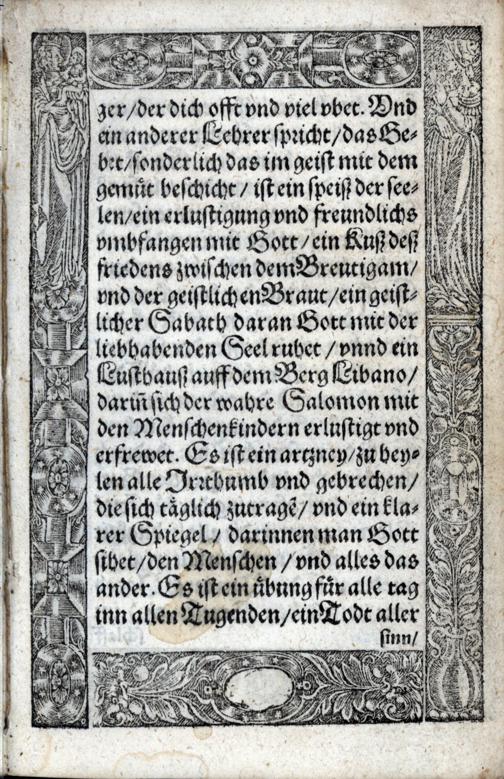 zer/der dich offt vnd viel vbet. Vnd
ein anderer Lehrer spricht/das Ge-
bet/sonderlich das im geist mit dem
gemüt beschicht/ist ein speiß der see-
len/ein erlustigung vnd freundlichs
vmbfangen mit Gott/ein Kuß deß
friedens zwischen dem Breutigam/
vnd der geistlichen Braut/ein geist-
licher Sabath daran Gott mit der
liebhabenden Seel ruhet/vnnd ein
Lusthauß auff dem Berg Libano/
dariñ sich der wahre Salomon mit
den Menschenkindern erlustigt vnd
erfrewet. Es ist ein artzney/zu hey-
len alle Irrthumb vnd gebrechen/
die sich täglich zutragē/vnd ein kla-
rer Spiegel/darinnen man Gott
sihet/den Menschen/vnd alles das
ander. Es ist ein übung für alle tag
inn allen Tugenden/ein Todt aller
sinn/